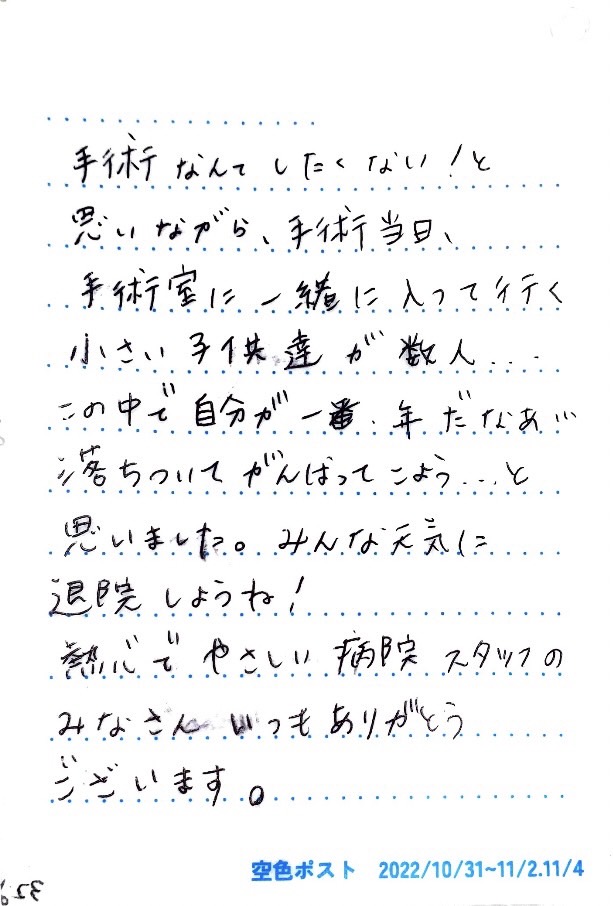 手術なんてしたくない!と
思いながら、手術当日、
手術室に一緒に入って行く
小さい子供達が数人....
この中で自分が一番年だなあ...
落ちついてがんばってこよう...と
思いました。みんな元気に
退院しようね!
熱心でやさしい病院スタッフの
みなさんいつもありがとう
ございます。
空色ポスト 2022/10/31~11/2.11/4